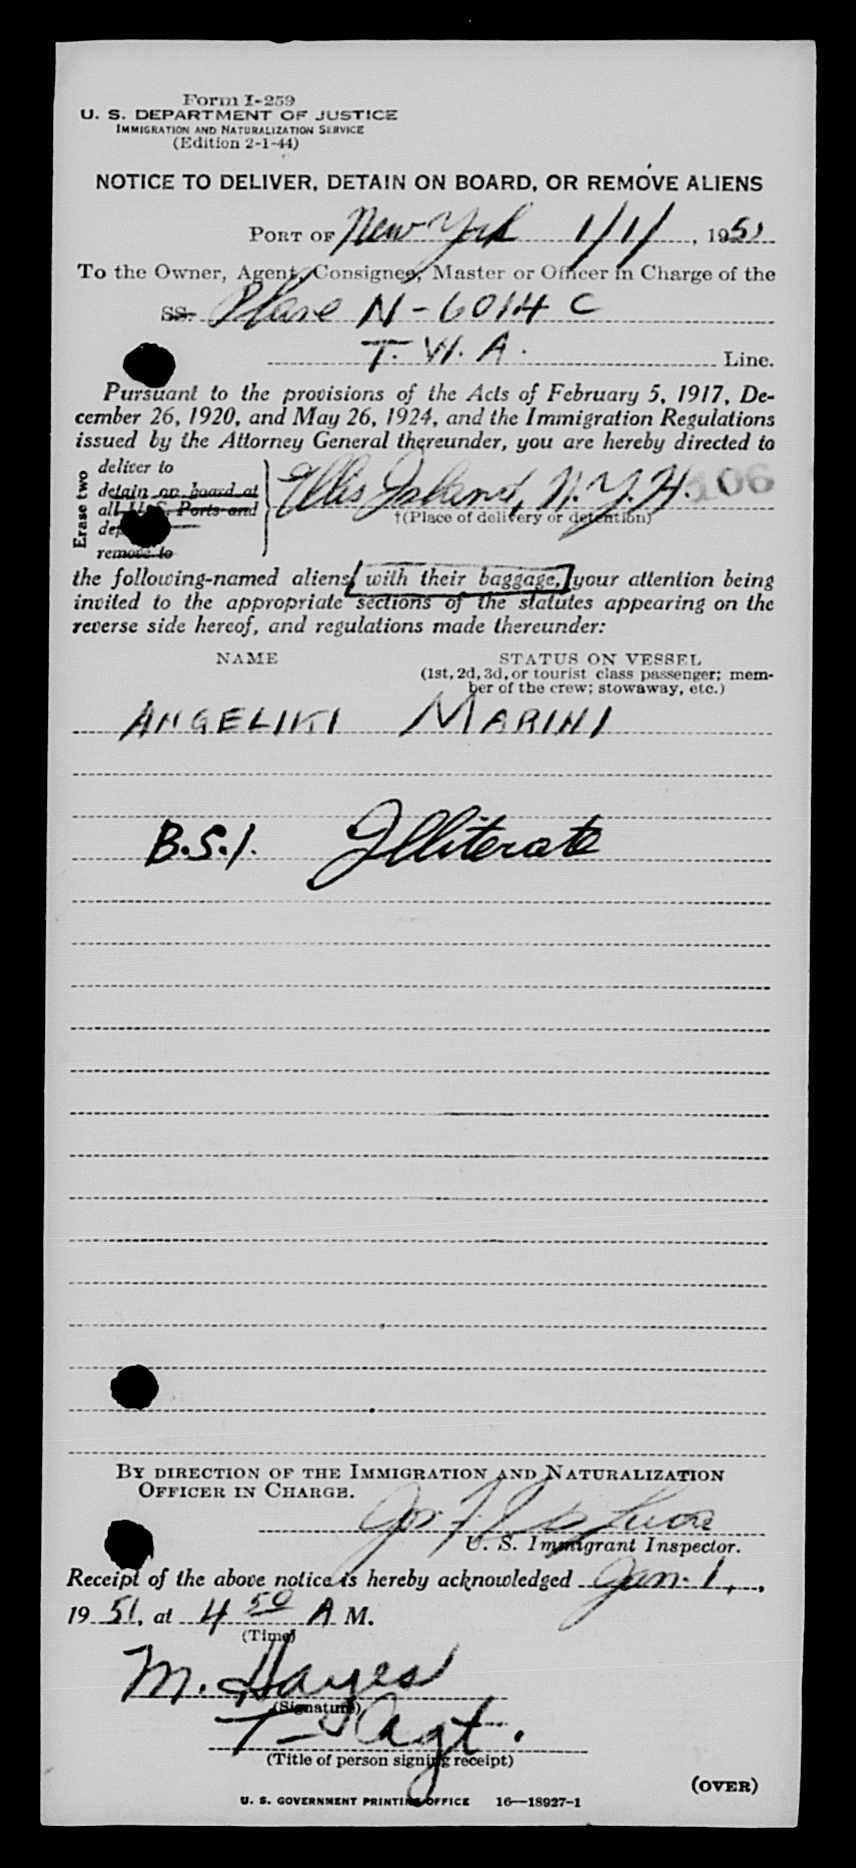 Form I-259
U. S. DEPARTMENT OF JUSTICE
IMMIGRATION AND NATURALIZATION SERVICE
(Edition 2-1-44)
NOTICE TO DELIVER, DETAIN ON BOARD, OR REMOVE ALIENS
PORT OF New York 1/1/, 1951
To the Owner, Agent, Consignee, Master or Officer in Charge of the
SS. Plane N-6014 C
T. W. A. Line.
Pursuant to the provisions of the Acts of February 5, 1917, De-
cember 26, 1920, and May 26, 1924, and the Immigration Regulations
issued by the Attorney General thereunder, you are hereby directed to
Erase two
deliver to
detain on board at
all U.S. Ports and
remove to
Ellis Island, N.Y.H. 106
†(Place of delivery or detention)
the following-named aliens, with their baggage, your attention being
invited to the appropriate sections of the statutes appearing on the
reverse side hereof, and regulations made thereunder:
NAME STATUS ON VESSEL
(1st, 2d, 3d, or tourist class passenger; mem-
ber of the crew; stowaway, etc.)
ANGELIKI MARINI
B.S.I. Illiterate
BY DIRECTION OF THE IMMIGRATION AND NATURALIZATION
OFFICER IN CHARGE.
U. S. Immigrant Inspector.
Receipt of the above notice is hereby acknowledged Jan. 1,
1951, at 4 50 A M.
(Time)
M. Hayes
(Signature)
Agt.
(Title of person signing receipt)
(OVER)
U. S. GOVERNMENT PRINTING OFFICE 16—18927-1